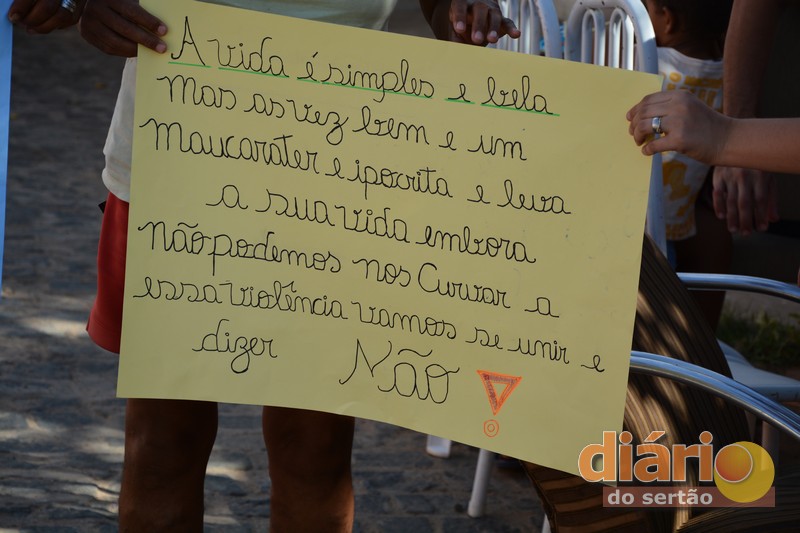 A vida é simples e bela
mas as vez bem e um
maucarater e ipocrita e leva
a sua vida embora
não podemos nos Curvar a
essa violência vamos se unir e
dizer Não!
diário
do sertão